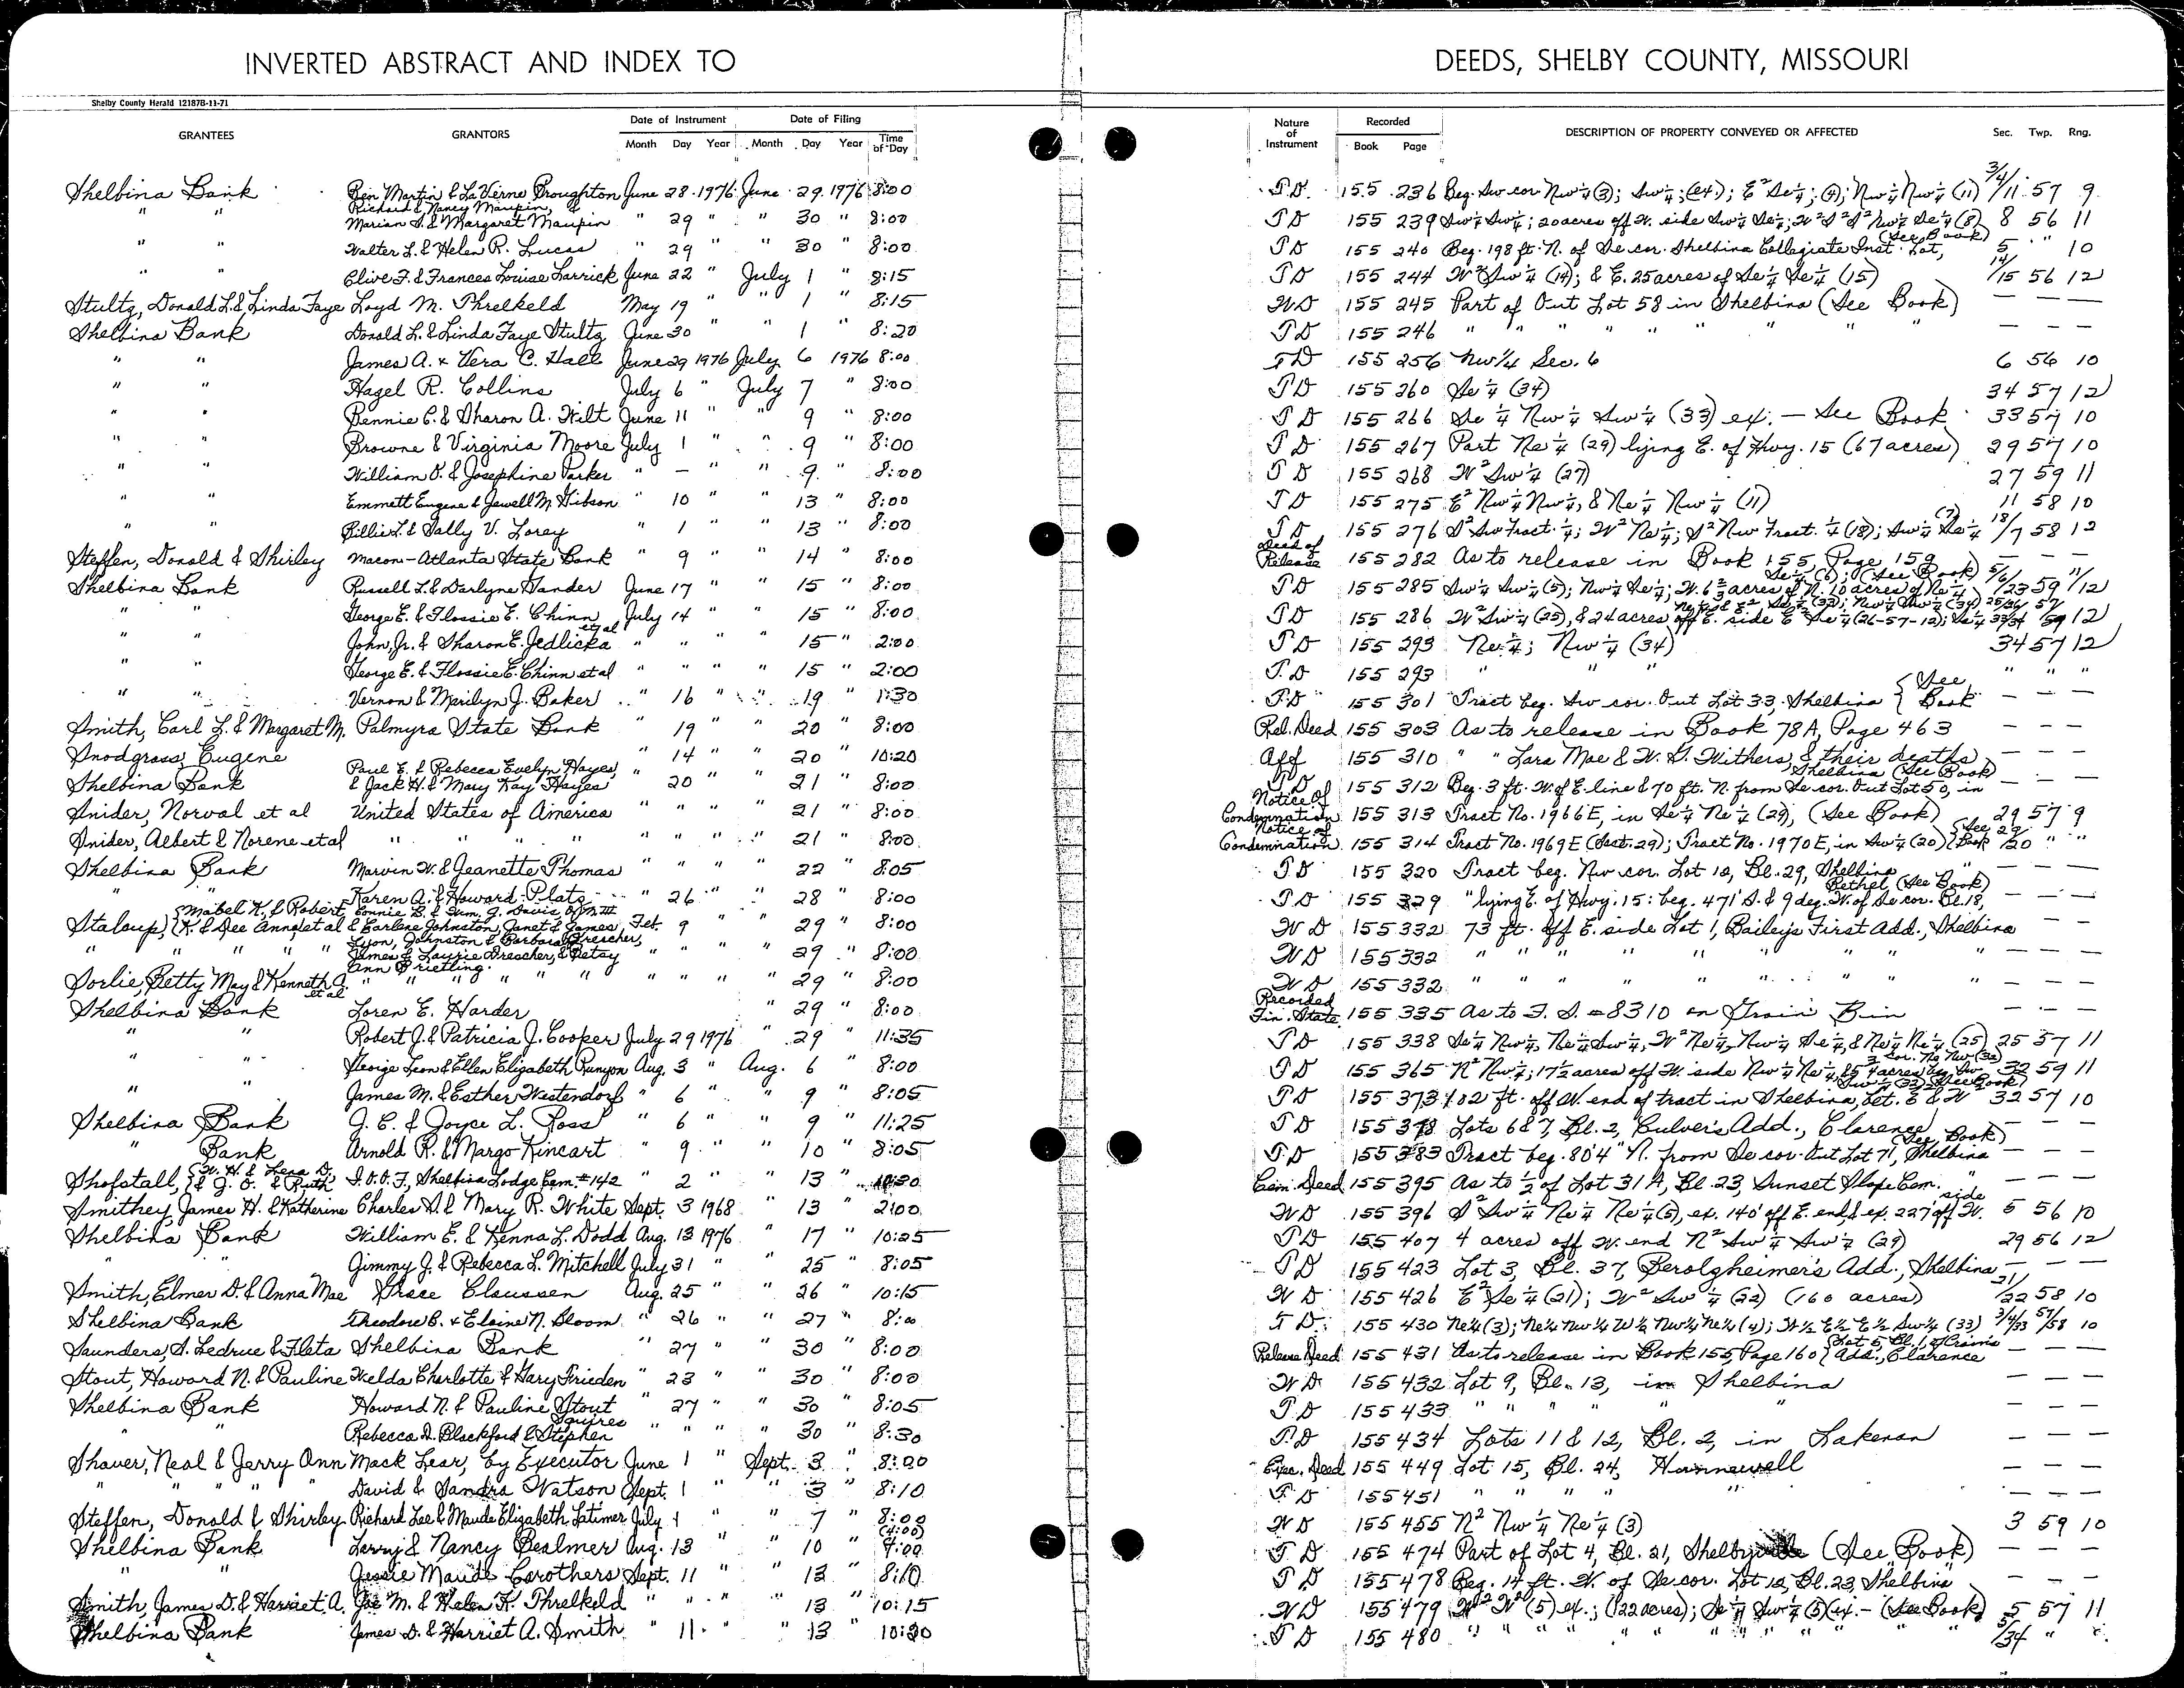 INVERTED ABSTRACT AND INDEX TO DEEDS, SHELBY COUNTY, MISSOURI
Shelby County Herald 12187B-11-71
GRANTEES GRANTORS Date of Instrument Month Day Year Date of Filing Month Day Year Time of Day Nature of Instrument Recorded Book Page DESCRIPTION OF PROPERTY CONVEYED OR AFFECTED Sec. Twp. Rng.
Shelbina Bank Ben Martin & La Verne Broughton June 28 1976 June 29 1976 8:00 T.D. 155 236 Beg. Sw cor Nw¼ (3); Sw¼; (4); E² Se¼; (4); Nw¼ Nw¼ (11) 3/4/11 57 9
" " Richard & Nancy Maupin, & Marian S. & Margaret Maupin " 29 " " 30 " 8:00 T D 155 239 Sw¼ Sw¼; 20 acres off W. side Sw¼ Se¼; W² S² S² Nw¼ Se¼ (8) 8 56 11
" " Walter L. & Helen R. Lucas " 29 " " 30 " 8:00 T D 155 240 Beg. 198 ft. N. of Se cor. Shelbina Collegiate Inst. Lot, (See Book) 5 " 10
" " Clive F. & Frances Louise Larrick June 22 " July 1 " 8:15 T D 155 244 W² Sw¼ (14); & E. 25 acres of Se¼ Se¼ (15) 14/15 56 12
Stultz, Donald L. & Linda Faye Loyd M. Threlkeld May 19 " " 1 " 8:15 W D 155 245 Part of Out Lot 58 in Shelbina (See Book) — — —
Shelbina Bank Donald L. & Linda Faye Stultz June 30 " " 1 " 8:20 T D 155 246 " " " " " " " " — — —
" " James A. & Vera C. Hall June 29 1976 July 6 1976 8:00 T D 155 256 Nw¼ Sec. 6 6 56 10
" " Hazel R. Collins July 6 " July 7 " 8:00 T D 155 260 Se¼ (34) 34 57 12
" " Bennie C. & Sharon A. Wilt June 11 " " 9 " 8:00 T D 155 266 Se¼ Nw¼ Sw¼ (33) ex. — See Book 33 57 10
" " Browne & Virginia Moore July 1 " " 9 " 8:00 T D 155 267 Part Ne¼ (29) lying E. of Hwy. 15 (67 acres) 29 57 10
" " William O. & Josephine Parker " — " " 9 " 8:00 T D 155 268 W² Sw¼ (27) 27 59 11
" " Emmett Eugene & Jewell M. Gibson " 10 " " 13 " 8:00 T D 155 275 E² Nw¼ Nw¼, & Ne¼ Nw¼ (11) 11 58 10
" " Billie L. & Sally V. Lorey " 1 " " 13 " 8:00 T D 155 276 S² Sw Fract. ¼; W² Ne¼; S² Nw Fract. ¼ (18); Sw¼ Se¼ (7) 18/7 58 12
Steffen, Donald & Shirley Macon-Atlanta State Bank " 9 " " 14 " 8:00 Deed of Release 155 282 As to release in Book 155, Page 159 — — —
Shelbina Bank Russell L. & Darlyne Gander June 17 " " 15 " 8:00 T D 155 285 Sw¼ Sw¼ (5); Nw¼ Se¼; W. 6⅔ acres of N. 10 acres of Ne¼ Se¼ (6); (See Book) 5/6/23 59 11/12
" " George E. & Flossie E. Chinn July 14 " " 15 " 8:00 T D 155 286 W² Sw¼ (25), & 24 acres off E. side E² Se¼ (26-57-12); 12
" " John, Jr. & Sharon E. Jedlicka et al " " " " 15 " 2:00 T D 155 293 Ne¼; Nw¼ (34) 34 57 12
" " George E. & Flossie E. Chinn et al " " " " 15 " 2:00 T. D 155 293 " " " " " "
" " Vernon & Marilyn J. Baker " 16 " " 19 " 1:30 T.D 155 301 Tract beg. Sw cor. Out Lot 33, Shelbina {See Book — — —
Smith, Carl L. & Margaret M. Palmyra State Bank " 19 " " 20 " 8:00 Rel. Deed 155 303 As to release in Book 78A, Page 463 — — —
Snodgrass, Eugene " 14 " " 20 " 10:20 Aff 155 310 " " Lara Mae & W. G. Withers, & their deaths — — —
Shelbina Bank Paul E. & Rebecca Evelyn Hayes, & Jack H. & Mary Kay Hayes 20 " " 21 " 8:00 T D 155 312 Beg. 3 ft. W. of E. line & 70 ft. N. from Se cor. Out Lot 50, in Shelbina (See Book) — — —
Snider, Norval et al United States of America " " " " 21 " 8:00 Notice Of Condemnation 155 313 Tract No. 1966E, in Se¼ Ne¼ (29), (See Book) 29 57 9
Snider, Albert & Norene et al " " " " " " " " 21 " 8:00 Notice of Condemnation 155 314 Tract No. 1969E (Sect. 29); Tract No. 1970E, in Sw¼ (20) {See Book 29/20 " "
Shelbina Bank Marvin W. & Jeanette Thomas " " " " 22 " 8:05 T D 155 320 Tract beg. Nw cor. Lot 12, Bl. 29, Shelbina — — —
" " Karen A. & Howard Plato " 26 " " 28 " 8:00 T D 155 329 " lying E. of Hwy. 15: beg. 471' S. & 9 deg. W. of Se cor. Bl. 18, Bethel (See Book) — — —
Stalcup, {Mabel K., & Robert K. & Dee Ann, et al & Earlene Johnston, Janet & James Feb. 9 " " 29 " 8:00 W D 155 332 73 ft. off E. side Lot 1, Bailey's First Add., Shelbina — — —
" " " " " Lyon, Johnston & Barbara Drescher, James & Laurie Drescher, & Betsy Ann Brietling. " " " " 29 " 8:00 W D 155 332 " " " " " " " — — —
Sorlie, Betty May & Kenneth A. et al " " " " " " " " " " 29 " 8:00 W D 155 332 " " " " " " " — — —
Shelbina Bank Loren E. Harder " 29 " 8:00 Recorded Fin. State. 155 335 As to F. S. #8310 on Grain Bin — — —
" " Robert J. & Patricia J. Cooper July 29 1976 " 29 " 11:35 T D 155 338 Se¼ Nw¼, Ne¼ Sw¼, W² Ne¼, Nw¼ Se¼, & Ne¼ Ne¼ (25) 25 57 11
" " George Leon & Ellen Elizabeth Runyon Aug. 3 " Aug. 6 " 8:00 T D 155 365 N² Nw¼; 17½ acres off W. side Nw¼ Ne¼, 32 59 11
" " James M. & Esther Westendorf " 6 " " 9 " 8:05 T D 155 373 102 ft. off W. end of tract in Shelbina, 32 57 10
Shelbina Bank J. C. & Joyce L. Ross " 6 " " 9 " 11:25 T D 155 378 Lots 6 & 7, Bl. 2, Culver's Add., Clarence — — —
" Bank Arnold R. & Margo Kincart " 9 " " 10 " 8:05 T.D 155 383 Tract beg. 80'4" N. from Se cor. Out Lot 71, Shelbina (See Book) — — —
Shofstall, {W. H. & Lena D. & J. O. & Ruth I.O.O.F., Shelbina Lodge Cem. #142 " 2 " " 13 " 10:30 Cem. Deed 155 395 As to ½ of Lot 31A, Bl. 23, Sunset Slope Cem. — — —
Smithey, James H. & Katherine Charles S. & Mary R. White Sept. 3 1968 " 13 " 2:00 W D 155 396 S² Sw¼ Ne¼ Ne¼ (5), ex. 140' off E. end, & ex. 227' off W. side 5 56 10
Shelbina Bank William E. & Kenna L. Dodd Aug. 13 1976 " 17 " 10:25 T D 155 407 4 acres off W. end N² Sw¼ Sw¼ (29) 29 56 12
" " Jimmy J. & Rebecca L. Mitchell July 31 " " 25 " 8:05 T D 155 423 Lot 3, Bl. 37, Berolgheimer's Add., Shelbina — — —
Smith, Elmer D. & Anna Mae Grace Claussen Aug. 25 " " 26 " 10:15 W D 155 426 E² Se¼ (21); W² Sw¼ (22) (160 acres) 21/22 58 10
Shelbina Bank Theodore B. & Elaine N. Bloom " 26 " " 27 " 8:00 T D. 155 430 Ne¼ (3); Ne¼ Nw¼ W½ Nw¼ Ne¼ (4); W½ E½ E½ Sw¼ (33) 3/4/33 57/58 10
Saunders, S. Ledrue & Fleta Shelbina Bank " 27 " " 30 " 8:00 Release Deed 155 431 As to release in Book 155, Page 160 — — —
Stout, Howard N. & Pauline Welda Charlotte & Gary Frieden " 23 " " 30 " 8:00 W D 155 432 Lot 9, Bl. 13, in Shelbina — — —
Shelbina Bank Howard N. & Pauline Stout " 27 " " 30 " 8:05 T D 155 433 " " " " " " — — —
" " Rebecca D. Blackford & Stephen Squires " " " " 30 " 8:30 T.D 155 434 Lots 11 & 12, Bl. 2, in Lakenan — — —
Shaver, Neal & Jerry Ann Mack Lear, by Executor June 1 " Sept. 3 " 8:00 Exec. Deed 155 449 Lot 15, Bl. 24, Hunnewell — — —
" " " " " David & Sandra Watson Sept. 1 " " 3 " 8:10 T D 155 451 " " " " " — — —
Steffen, Donald & Shirley Richard Lee & Maude Elizabeth Latimer July 1 " " 7 " 8:00 W D 155 455 N² Nw¼ Ne¼ (3) 3 59 10
Shelbina Bank Larry & Nancy Bealmer Aug. 13 " " 10 " (4:00) 4:00 T D 155 474 Part of Lot 4, Bl. 21, Shelbyville (See Book) — — —
" " Jessie Maude Carothers Sept. 11 " " 13 " 8:10 T D 155 478 Beg. 14 ft. W. of Se cor. Lot 12, Bl. 23, Shelbina — — —
Smith, James D. & Harriet A. Joe M. & Helen K. Threlkeld " " " " 13 " 10:15 W D 155 479 W² W² (5) ex.; (122 acres); Se¼ Sw¼ (5) ex. - (See Book) 5 57 11
Shelbina Bank James D. & Harriet A. Smith " 11 " " 13 10:30 T D 155 480 " " " " " " " " " "